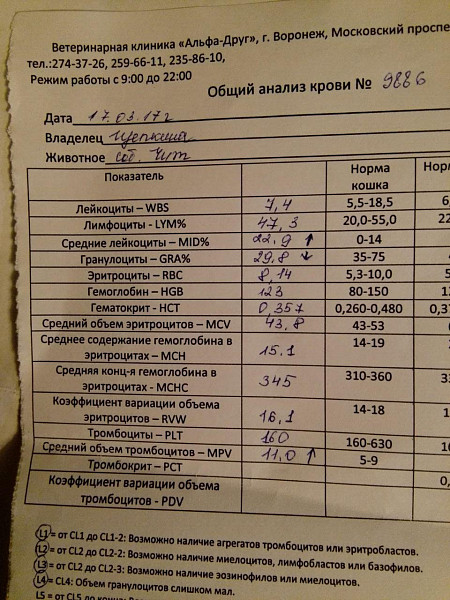 Ветеринарная клиника «Альфа-Друг», г. Воронеж, Московский проспе
тел.:274-37-26, 259-66-11, 235-86-10,
Режим работы с 9:00 до 22:00
Общий анализ крови № 9886
Дата 17.03.17г
Владелец
Животное соб. Чип
Показатель Норма кошка Норм
Лейкоциты – WBS 7,4 5,5-18,5 6,
Лимфоциты - LYM% 47,3 20,0-55,0 22
Средние лейкоциты – MID% 22.9 ↑ 0-14
Гранулоциты – GRA% 29.8 ↓ 35-75
Эритроциты – RBC 8,14 5,3-10,0 5
Гемоглобин – HGB 123 80-150 1
Гематокрит - HCT 0,357 0,260-0,480 0,3
Средний объем эритроцитов – MCV 43,8 43-53
Среднее содержание гемоглобина в
эритроцитах – MCH 15.1 14-19 2
Средняя конц-я гемоглобина в
эритроцитах - MCHC 345 310-360 33
Коэффициент вариации объема
эритроцитов – RVW 16,1 14-18 1
Тромбоциты – PLT 160 160-630 16
Средний объем тромбоцитов – MPV 11,0 ↑ 5-9
Тромбокрит – PCT 0,
Коэффициент вариации объема
тромбоцитов - PDV
L1 = от CL1 до CL1-2: Возможно наличие агрегатов тромбоцитов или эритробластов.
L2 = от CL2 до CL2-2: Возможно наличие миелоцитов, лимфобластов или базофилов.
L3 = от CL2 до CL2-3: Возможно наличие эозинофилов или миелоцитов.
L4 = CL4: Объем гранулоцитов слишком мал.
L5 = от CL5 до